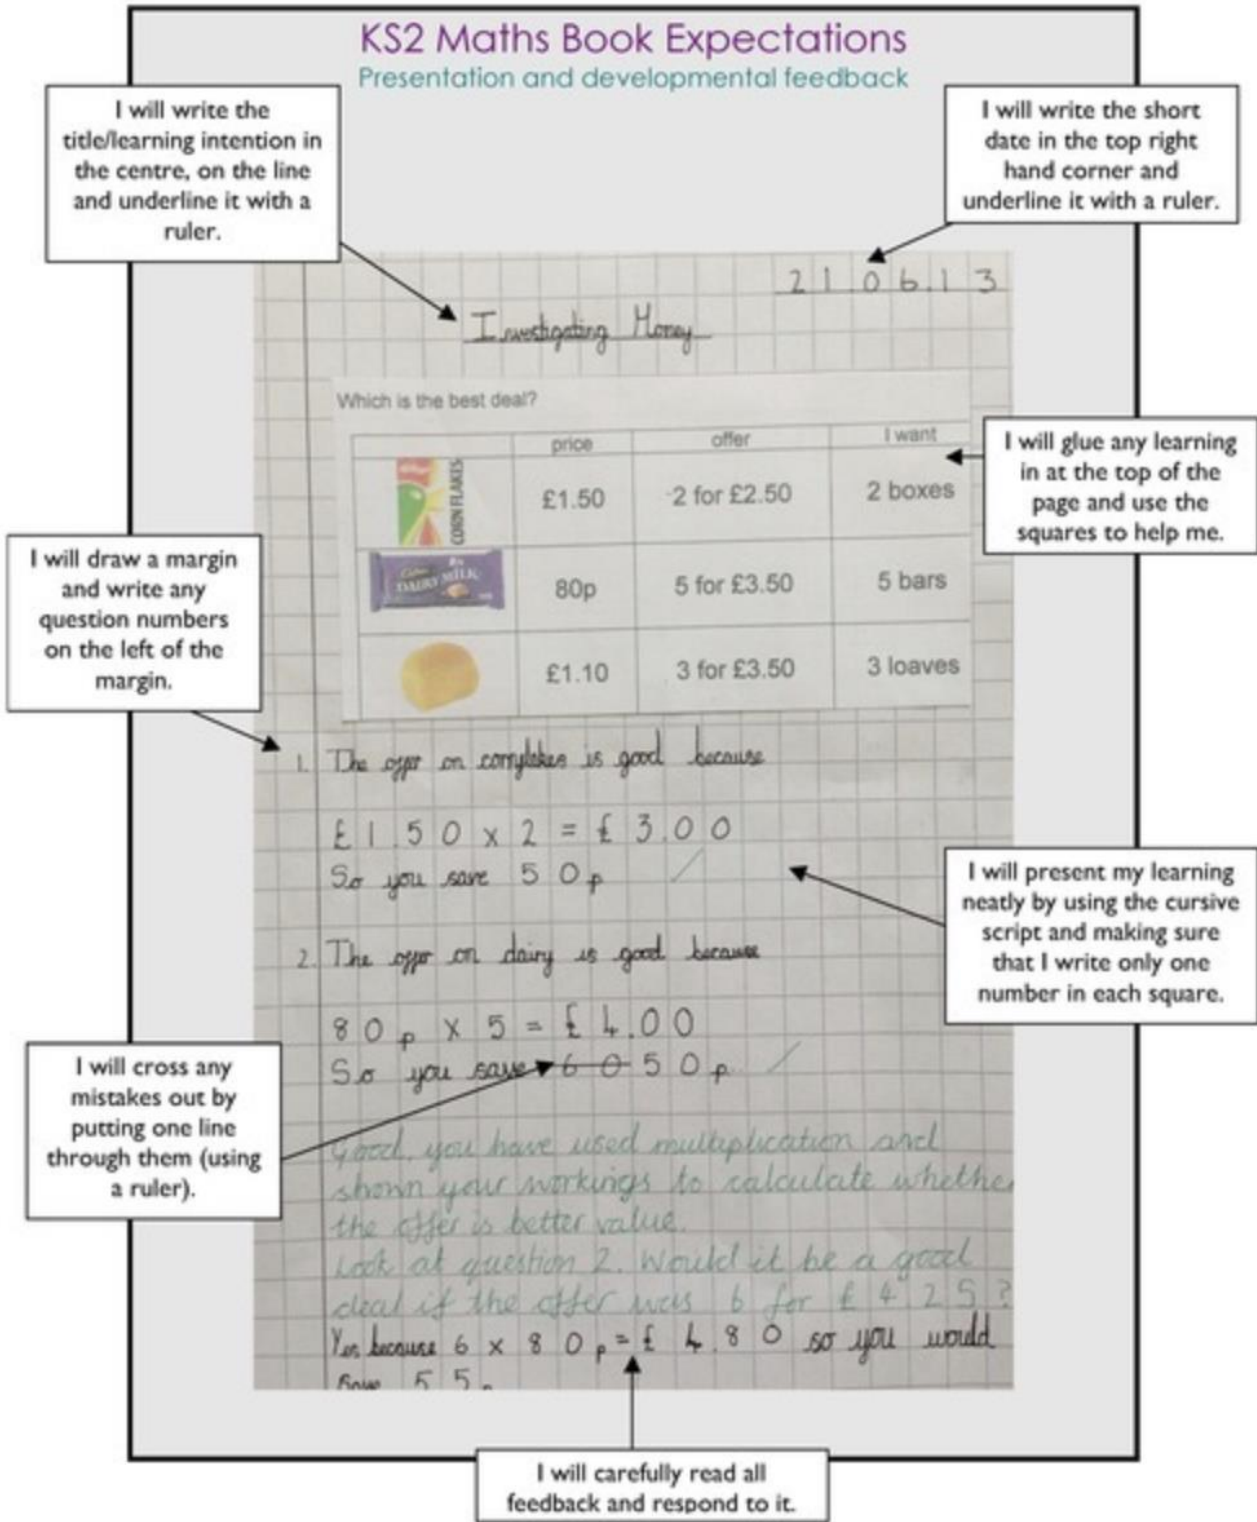 KS2 Maths Book Expectations
Presentation and developmental feedback
I will write the
title/learning intention in
the centre, on the line
and underline it with a
ruler.
I will write the short
date in the top right
hand corner and
underline it with a ruler.
21.06.13
Investigating Money
Which is the best deal?
price offer I want
CORN FLAKES £1.50 2 for £2.50 2 boxes
DAIRY MILK 80p 5 for £3.50 5 bars
£1.10 3 for £3.50 3 loaves
I will glue any learning
in at the top of the
page and use the
squares to help me.
I will draw a margin
and write any
question numbers
on the left of the
margin.
1. The offer on cornflakes is good because
£1.50 x 2 = £3.00
So you save 50p
I will present my learning
neatly by using the cursive
script and making sure
that I write only one
number in each square.
2. The offer on dairy is good because
80p x 5 = £4.00
So you save 60 50p.
I will cross any
mistakes out by
putting one line
through them (using
a ruler).
Good, you have used multiplication and
shown your workings to calculate whether
the offer is better value.
Look at question 2. Would it be a good
deal if the offer was 6 for £4.25?
Yes because 6 x 80p = £4.80 so you would
save 55
I will carefully read all
feedback and respond to it.